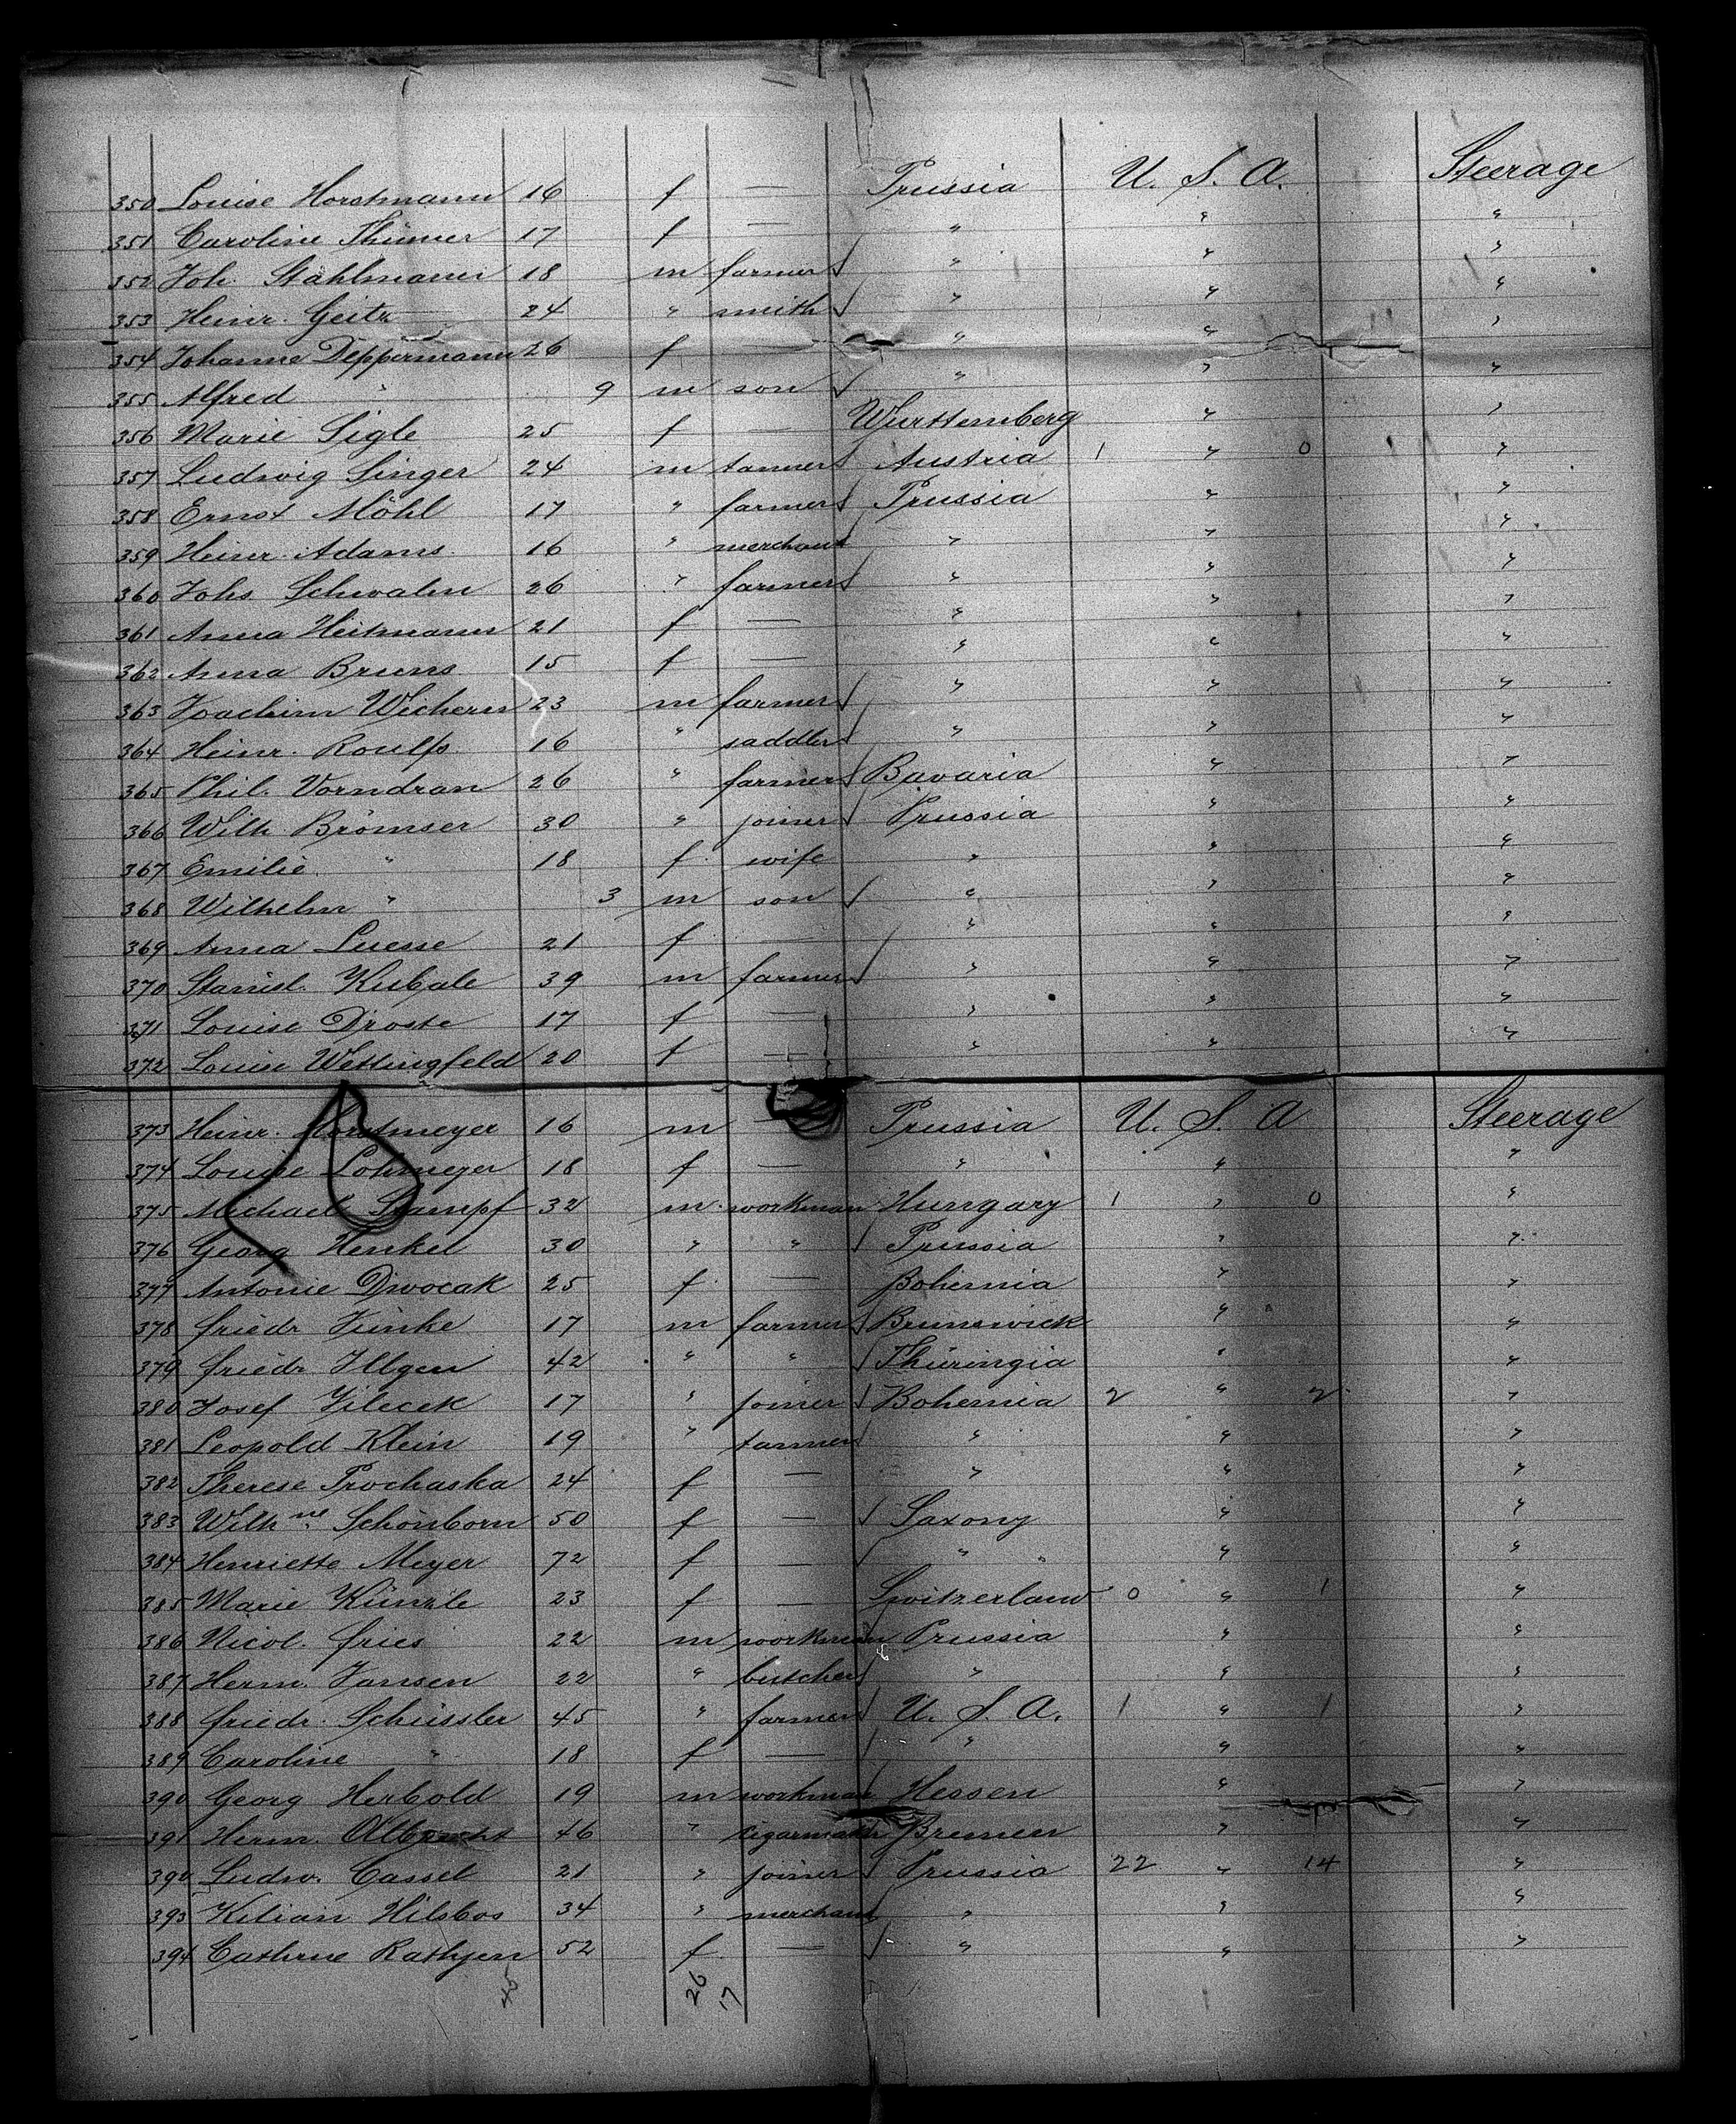 350 Louise Horstmann 16 f — Prussia U. S. A. Steerage
351 Caroline Thümer 17 f — " " "
352 Joh. Stahlmann 18 m farmer " " "
353 Heinr. Geitz 24 " smith " " "
354 Johanne Deppermann 26 f — " " "
355 Alfred " 9 m son " " "
356 Marie Sigle 25 f — Württemberg " "
357 Ludwig Singer 24 m tanner Austria 1 " 0 "
358 Ernst Möhl 17 " farmer Prussia " "
359 Heinr. Adams 16 " merchant " " "
360 Johs Schwalm 26 " farmer " " "
361 Anna Heitmann 21 f — " " "
362 Anna Bruns 15 f — " " "
363 Joachim Wichern 23 m farmer " " "
364 Heinr. Roulfs 16 " saddler " " "
365 Phil. Vorndran 26 " farmer Bavaria " "
366 Wilh. Brömser 30 " joiner Prussia " "
367 Emilie " 18 f. wife " " "
368 Wilhelm " 3 m son " " "
369 Anna Luesse 21 f — " " "
370 Stanisl. Kubale 39 m farmer " " "
371 Louise Droste 17 f — " " "
372 Louise Wettingfeld 20 f — " " "
373 Heinr. Horstmeyer 16 m — Prussia U. S. A Steerage
374 Louise Lohmeyer 18 f — " " "
375 Michael Stampf 32 m. workman Hungary 1 " 0 "
376 Georg Henkel 30 " " Prussia " "
377 Antonie Dwocak 25 f — Bohemia " "
378 Friedr Jünke 17 m farmer Brunswick " "
379 Friedr. Illgen 42 " " Thüringia " "
380 Josef Jilecek 17 " joiner Bohemia 2 " 2 "
381 Leopold Klein 19 " tanner " " "
382 Therese Prochaska 24 f — " " "
383 Wilh ne Schönborn 50 f — Saxony " "
384 Henriette Meyer 72 f — " " " "
385 Marie Künzle 23 f — Switzerland 0 " 1 "
386 Nicol. Fries 22 m workman Prussia " "
387 Herm. Jansen 22 " butcher " " "
388 Friedr. Schüssler 45 " farmer U. S. A. 1 " 1 "
389 Caroline " 18 f — " " "
390 Georg Herbold 19 m workman Hessen " "
391 Herm. Albrecht 46 " cigarmaker Bremen " "
390 Ludw. Cassel 21 " joiner Prussia 22 " 14 "
393 Kilian Hilsbos 34 " merchant " " "
394 Cathrne Rathjen 52 f — " " "
45 26 17